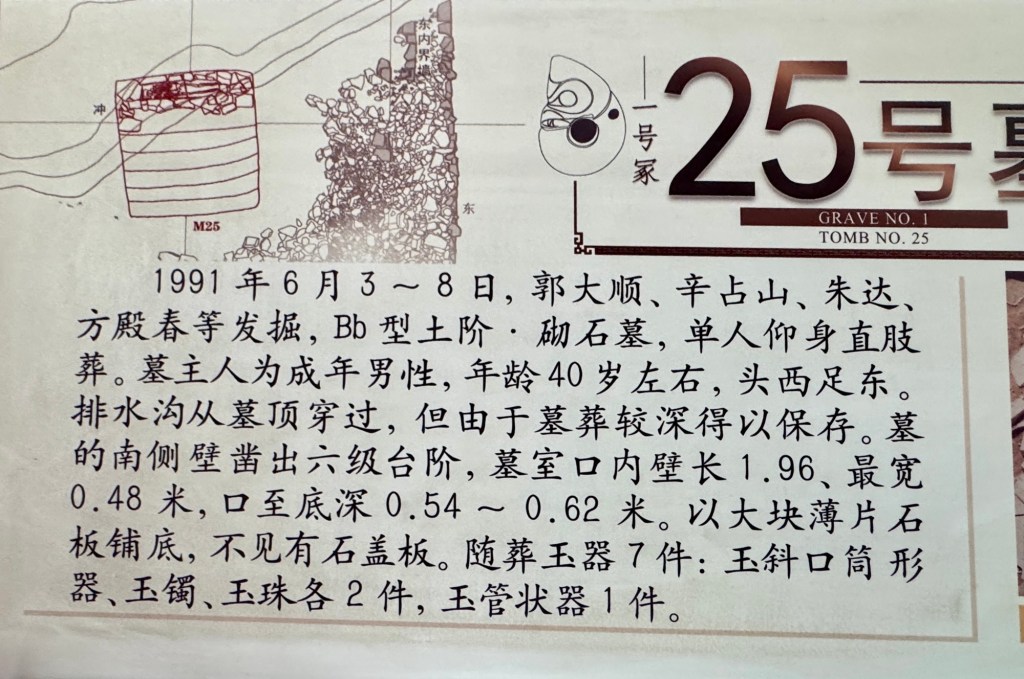 东内界墙
冲
M25
东
一号冢
25号墓
GRAVE NO. 1
TOMB NO. 25
1991 年 6 月 3 ～ 8 日，郭大顺、辛占山、朱达、
方殿春等发掘，Bb 型土阶 · 砌石墓，单人仰身直肢
葬。墓主人为成年男性，年龄 40 岁左右，头西足东。
排水沟从墓顶穿过，但由于墓葬较深得以保存。墓
的南侧壁凿出六级台阶，墓室口内壁长 1.96、最宽
0.48 米，口至底深 0.54 ～ 0.62 米。以大块薄片石
板铺底，不见有石盖板。随葬玉器 7 件：玉斜口筒形
器、玉镯、玉珠各 2 件，玉管状器 1 件。